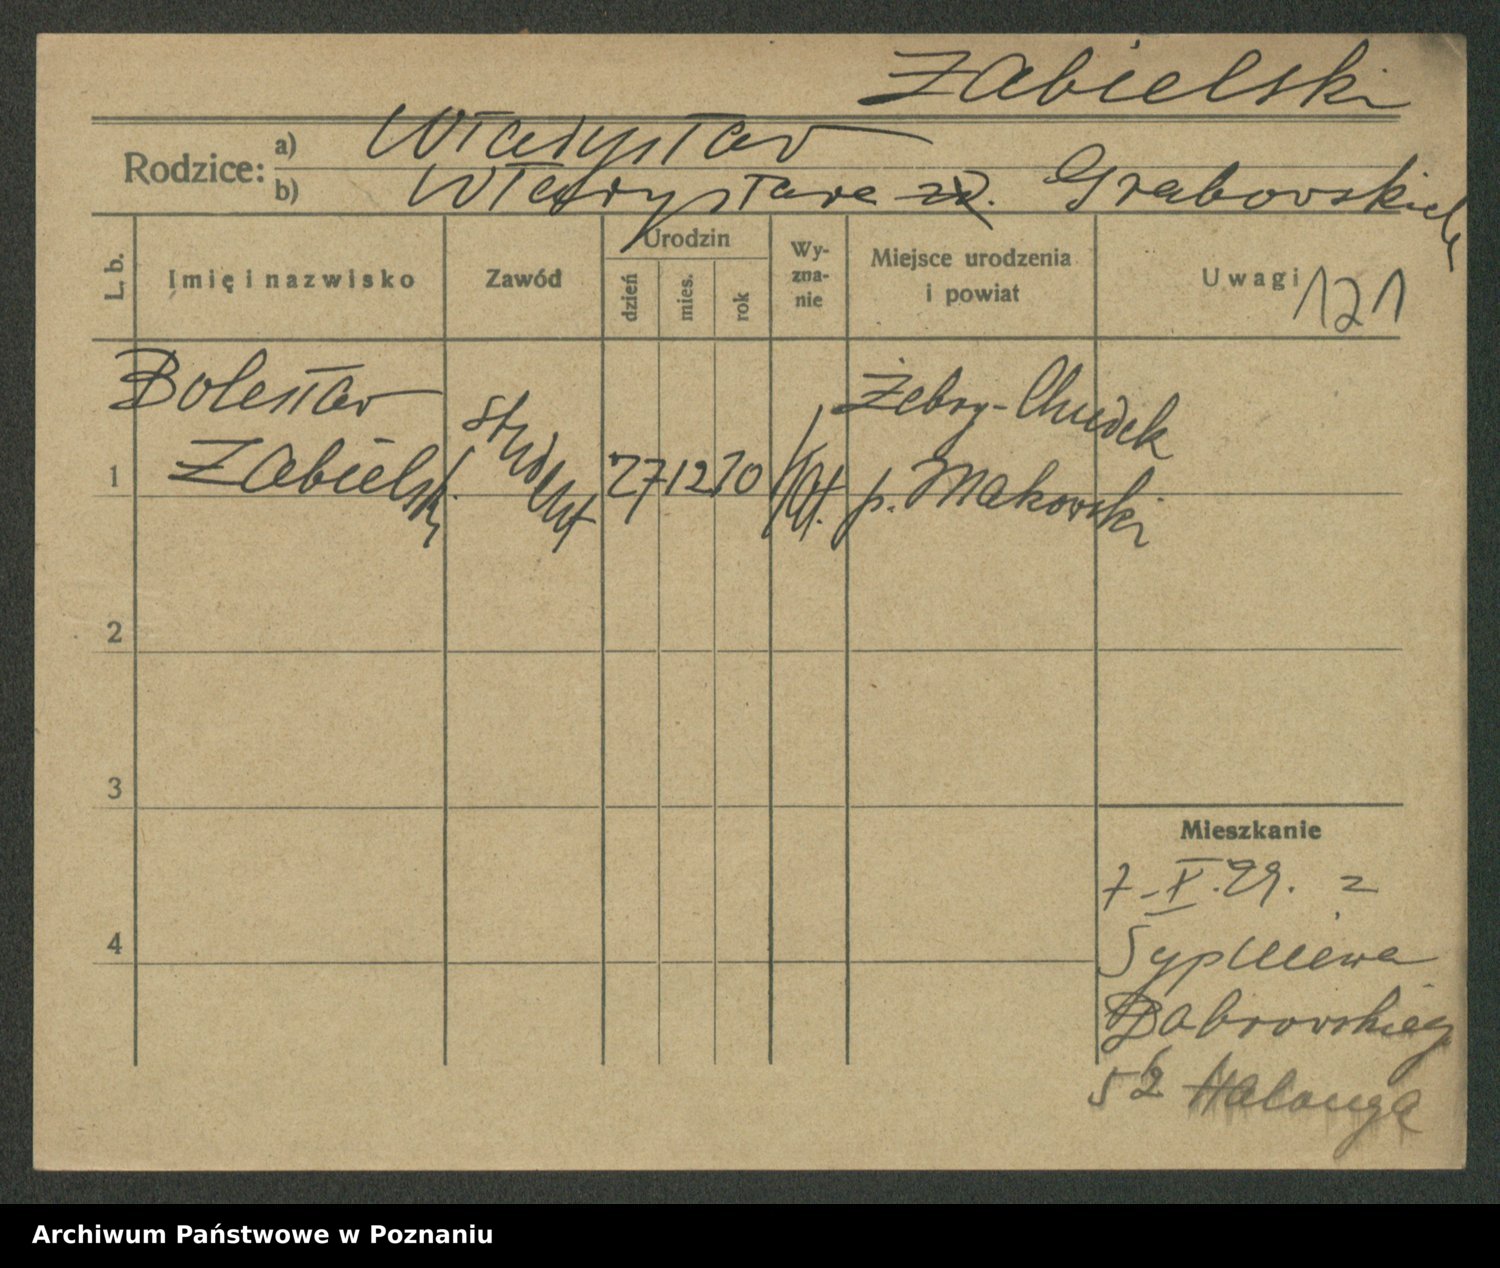 Zabielski
Rodzice: a) Władysław
b) Władysława zd. Grabowskich
L. b.
Imię i nazwisko
Zawód
Urodzin
dzień
mies.
rok
Wy-
zna-
nie
Miejsce urodzenia
i powiat
Uwagi
121
1
Bolesław
Zabielski
student
27 12 10
kat.
Żebry-Chudek
p. Makowski
2
3
4
Mieszkanie
7.X.29. z
Sypniewa
Dąbrowskieg
52
Archiwum Państwowe w Poznaniu